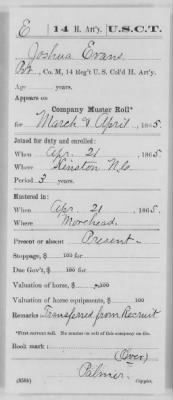 E 14 H. Art'y. U.S.C.T.
Joshua Evans
Pvt, Co. M, 14 Reg't U. S. Col'd H. Art'y.
Age years.
Appears on
Company Muster Roll*
for March & April, 1865.
Joined for duty and enrolled:
When Apr. 21, 1865.
Where Kinston N.C.
Period 3 years.
Mustered in:
When Apr. 21, 1865.
Where Morehead.
Present or absent Present
Stoppage, $ 100 for
Due Gov't, $ 100 for
Valuation of horse, $ 100
Valuation of horse equipments, $ 100
Remarks Transferred from Recruit
*First current roll. No muster-in roll of this company on file.
Book mark:
(Over)
Palmer
(358i) Copyist.